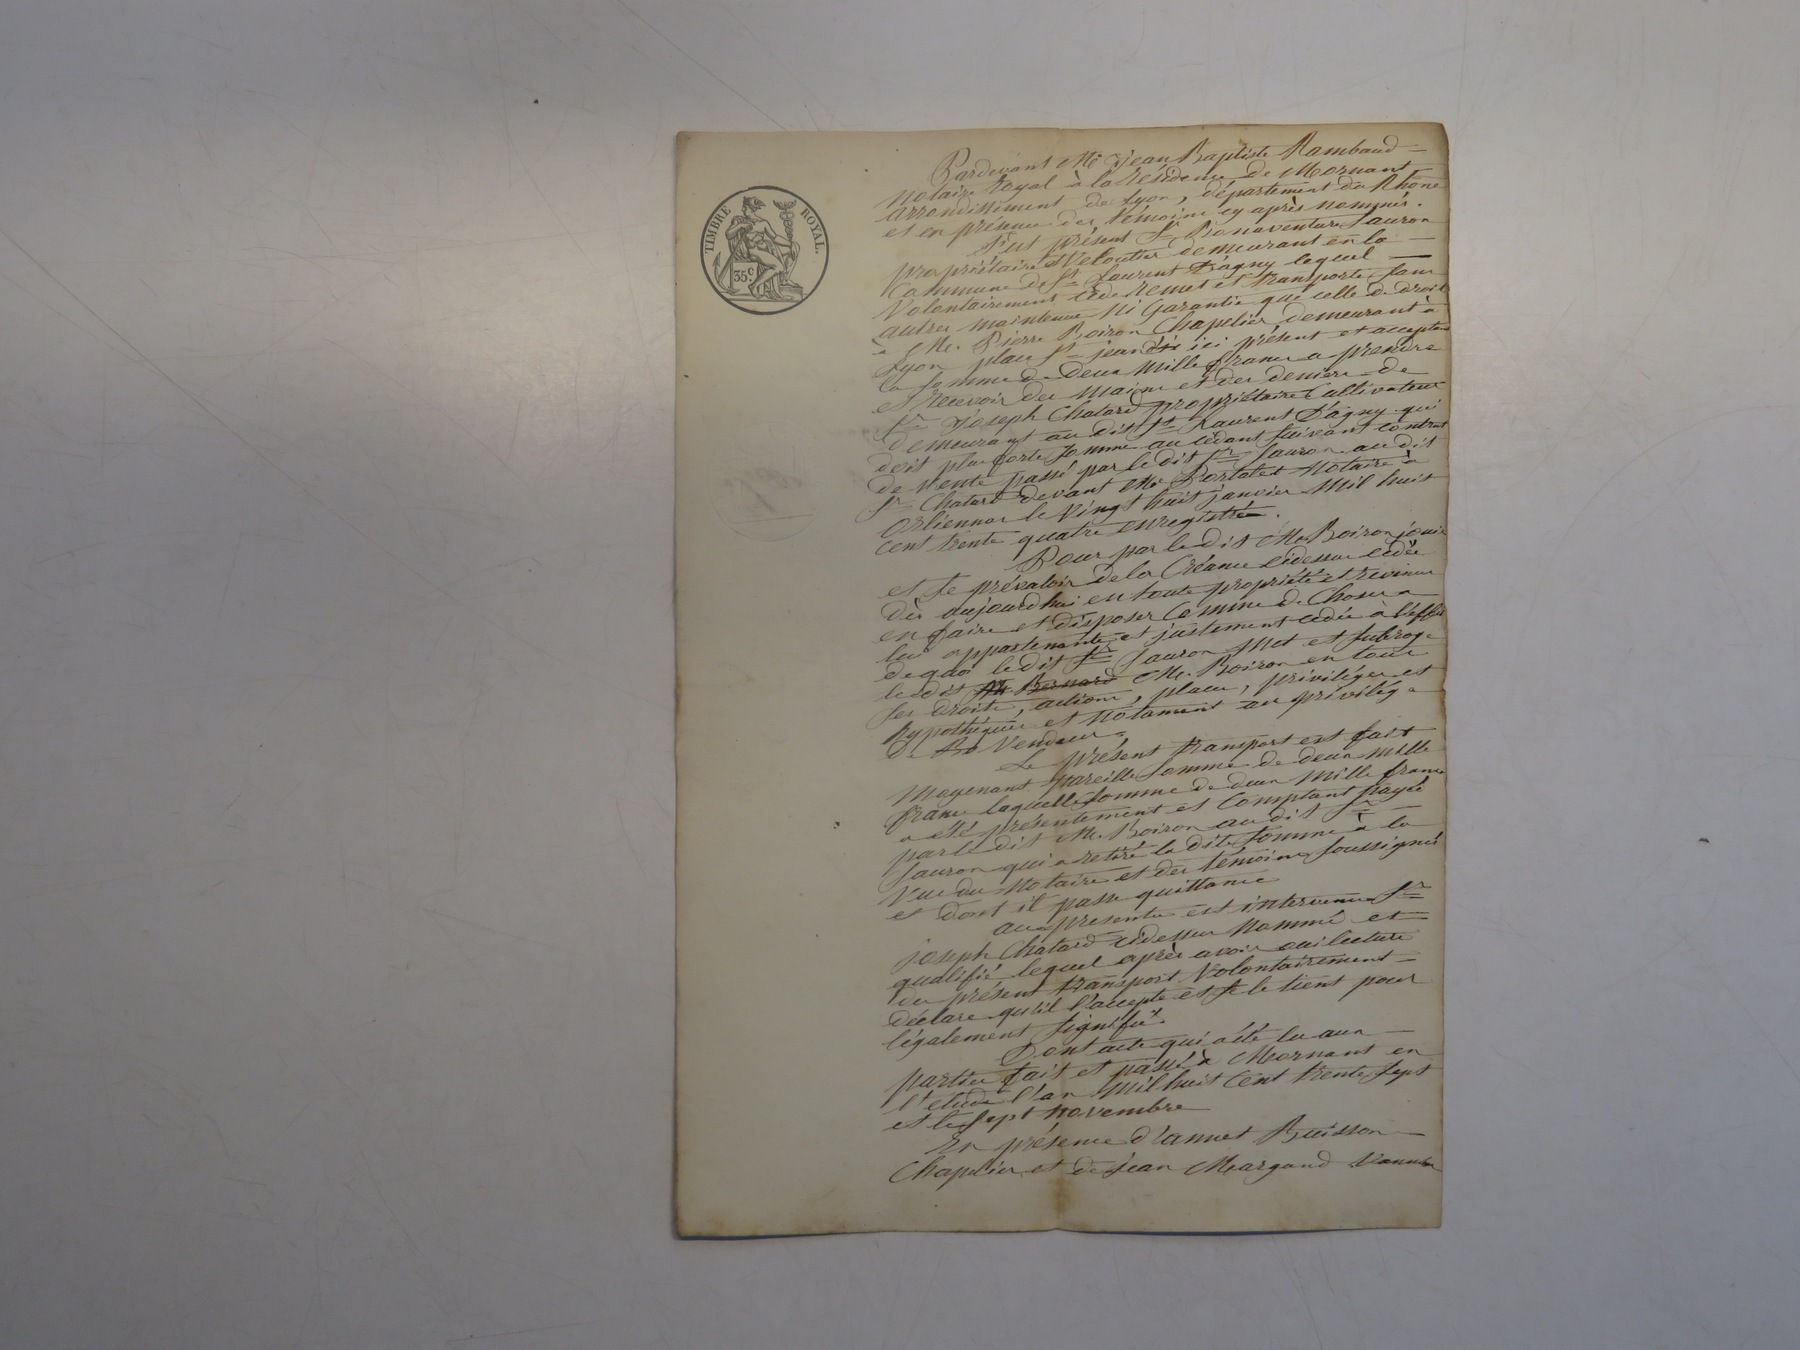 TIMBRE ROYAL.
35c
Pardevant Me Jean Baptiste Rambaud
Notaire Royal à la Résidence de Mornant
arrondissement de Lyon, département du Rhône
et en présence des témoins cy après nommés.
fut présent Sr Bonaventure Sauron
propriétaire et Veloutier demeurant en la
Commune de St Laurent d'agny lequel
Volontairement cède remet et transporte sans
autres maintenue Ni Garantie que celle de droit
à Mr. Pierre Boiron Chapelier demeurant à
Lyon place St jean ici présent et acceptant
la somme de deux Mille francs a prendre
et recevoir des mains et des deniers de
Sr Joseph Chatard propriétaire Cultivateur
demeurant au dit St Laurent d'agny qui
doit plus forte Somme au cédant suivant contrat
de Vente passé par le dit Sr Sauron au dit
Sr Chatard devant Me Notaire à
Orliennas le Vingt huit janvier Mil huit
cent trente quatre enregistré.
Pour par le dit Mr Boiron jouir
et se prévaloir de la Créance cidessus cédée
dès aujourdhui en toute propriété et revenus
en faire et disposer Comme de Chose a
lui appartenante et justement cédée à l'effet
de quoi le dit Sr Sauron Met et subroge
le dit Mr Bernard Mr. Boiron en tous
ses droits, actions, places, privilèges et
hypothèques et Notament au privilége
de Vendeur.
Le présent transport est fait
Moyenant pareille Somme de deux mille
francs laquelle Somme de deux Mille francs
a été présentement et Comptant payée
par le dit Mr. Boiron au dit Sr
Sauron qui a retiré la dite Somme à la
Vue du Notaire et des témoins soussignés
et dont il passe quittance
aux présentes est intervenu Sr
joseph Chatard cidessus Nommé et
qualifié lequel après avoir oui lecture
du présent transport Volontairement
déclare qu'il l'accepte et se le tient pour
légalement signifié.
Dont acte qui a été lu aux
parties fait et passé à Mornant en
l'étude l'an Mil huit Cent trente Sept
et le Sept Novembre
En présence d'annet Buisson
Chapelier et de Jean Margand